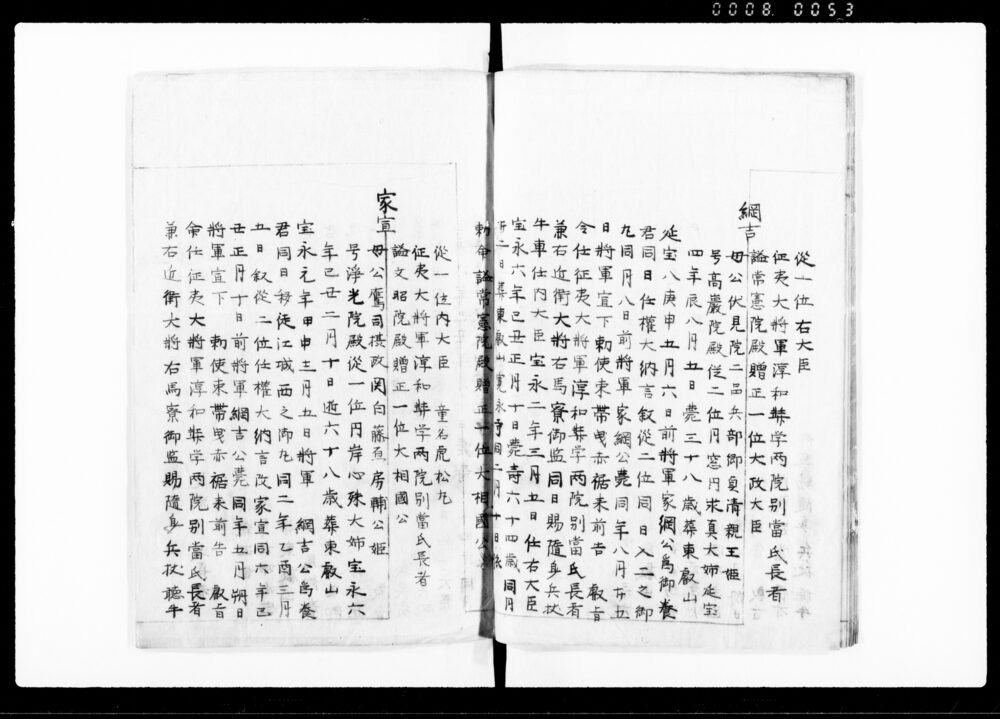 0008 0053
綱吉
從一位右大臣
征夷大將軍淳和奘学両院別當氏長者
謚常憲院殿贈正一位大政大臣
母公伏見院二品兵部卿貞清親王姫
号高巌院殿從二位月窓円求真大姉延宝
四年辰八月五日薨三十八歳葬東叡山
延宝八庚申五月六日前將軍家綱公為御養
君同日任權大納言叙從二位同日入二之御
九同月八日前將軍家綱公薨同年八月廿五
日將軍宣下勅使束帯曵赤裾来前告叡旨
令任征夷大將軍淳和奘学両院別當氏長者
兼右近衛大將右馬寮御監同日賜隨身兵仗
牛車任内大臣宝永二年三月五日任右大臣
宝永六年己丑正月十日薨寿六十四歳同月
廿二日葬東叡山寛永寺同二月十日
勅命謚常憲院殿贈正一位大相國公
從一位内大臣 童名虎松九
征夷大將軍淳和奘学両院別當氏長者
謚文昭院殿贈正一位大相國公
家宣
母公鷹司摂政関白藤原房輔公姫
号浄光院殿從一位円岸心珠大姉宝永六
年己丑二月十日逝六十八歳葬東叡山
宝永元年甲申十二月五日將軍 綱吉公為養
君同日移徙江城西之御九同二年乙酉三月
五日叙從二位任權大納言改家宣同六年己
丑正月十日前將軍綱吉公薨同年五月朔日
將軍宣下 勅使束帯曵赤裾来前告 叡旨
令任征夷大將軍淳和奘学両院別當氏長者
兼右近衛大將右馬寮御監賜隨身兵仗聴牛